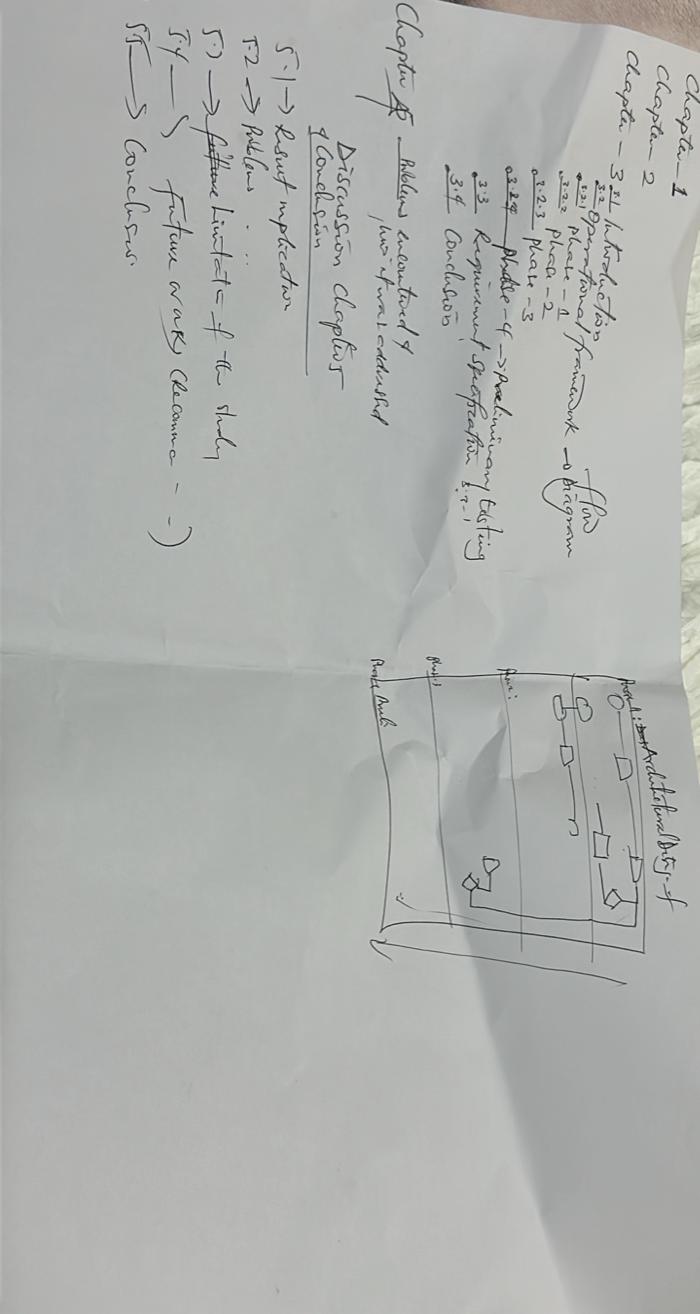 Chapter - 1
Chapter - 2
Chapter - 3
3.1 Introduction
3.2 Operational framework → flow Diagram
3.2.1 phase - 1
3.2.2 phase - 2
3.2.3 phase - 3
3.2.4 phase - 4 → Preliminary testing
3.3 Requirement specification
3.4 Conclusion
Chapter
Problems encountered &
how it was addressed
Discussion chapter 5
& Conclusion
5.1 → Result implication
5.2 → Problems . ..
5.3 → future Limitat = of the study
5.4 → Future works (Recomme - - )
5.5 → Conclusion.
Architectural